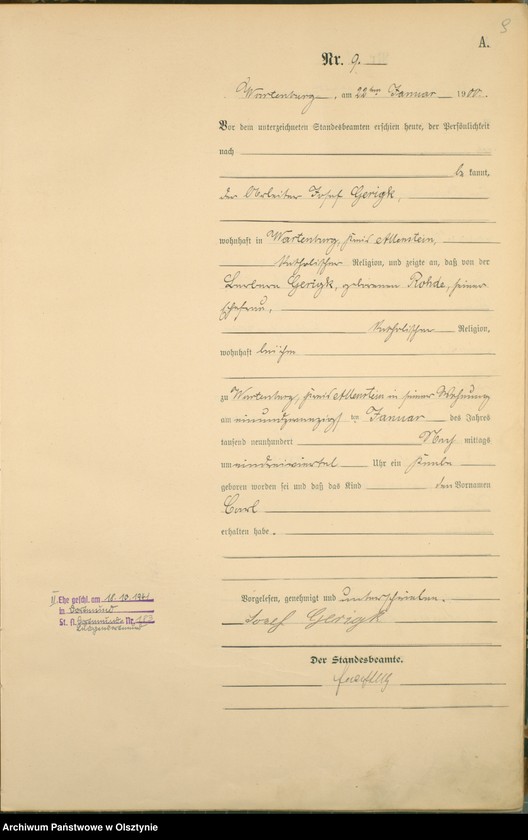 8
A.
Nr. 9.
Wartenburg, am 22ten Januar 1900.
Vor dem unterzeichneten Standesbeamten erschien heute, der Persönlichkeit
nach
bekannt,
der Arbeiter Josef Gerigk,
wohnhaft in Wartenburg, Kreis Allenstein,
katholischer Religion, und zeigte an, daß von der
Barbara Gerigk, geborenen Rohde, seiner
Ehefrau,
katholischer Religion,
wohnhaft bei ihm
zu Wartenburg, Kreis Allenstein in seiner Wohnung
am einundzwanzigsten Januar des Jahres
tausend neunhundert Nachmittags
um eindreiviertel Uhr ein Knabe
geboren worden sei und daß das Kind den Vornamen
Carl
erhalten habe.
Vorgelesen, genehmigt und unterschrieben.
Josef Gerigk
Der Standesbeamte.
II. Ehe geschl. am 18.10.1941
in Dortmund
St. A. Dortmund Nr.
Archiwum Państwowe w Olsztynie